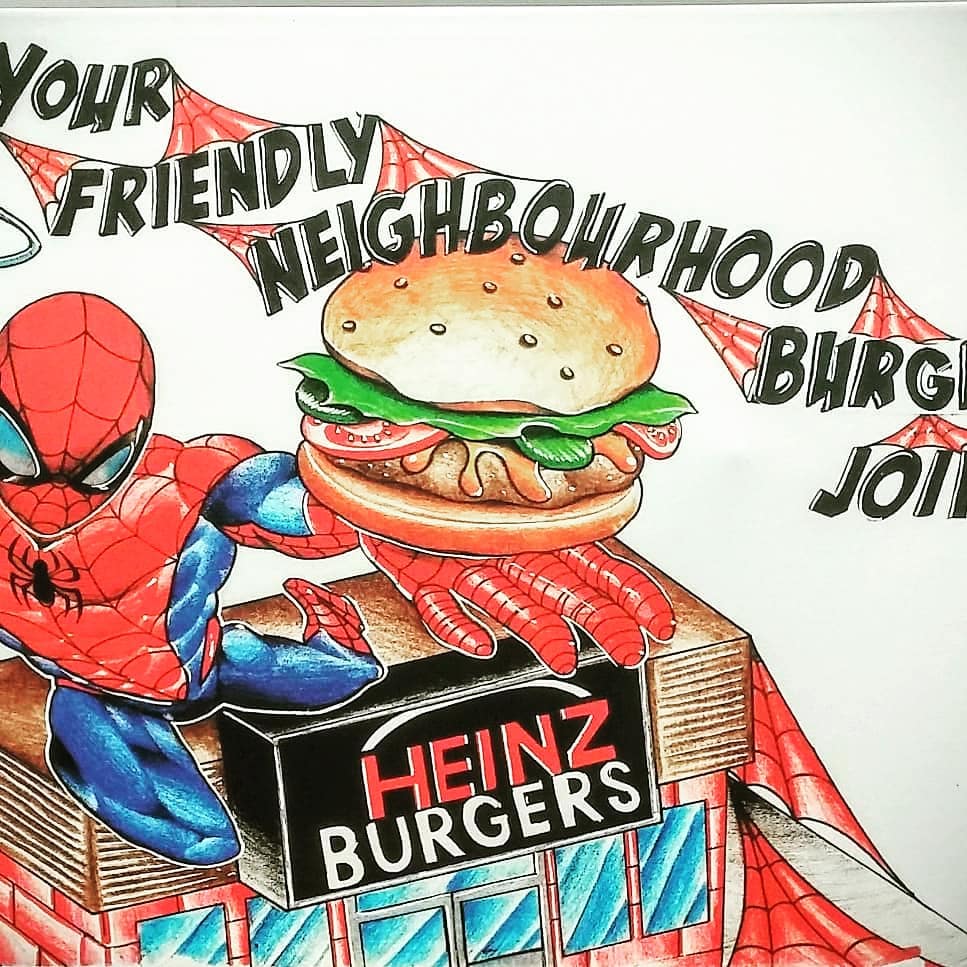 YOUR
FRIENDLY
NEIGHBOURHOOD
BURG
JOI
HEINZ
BURGERS